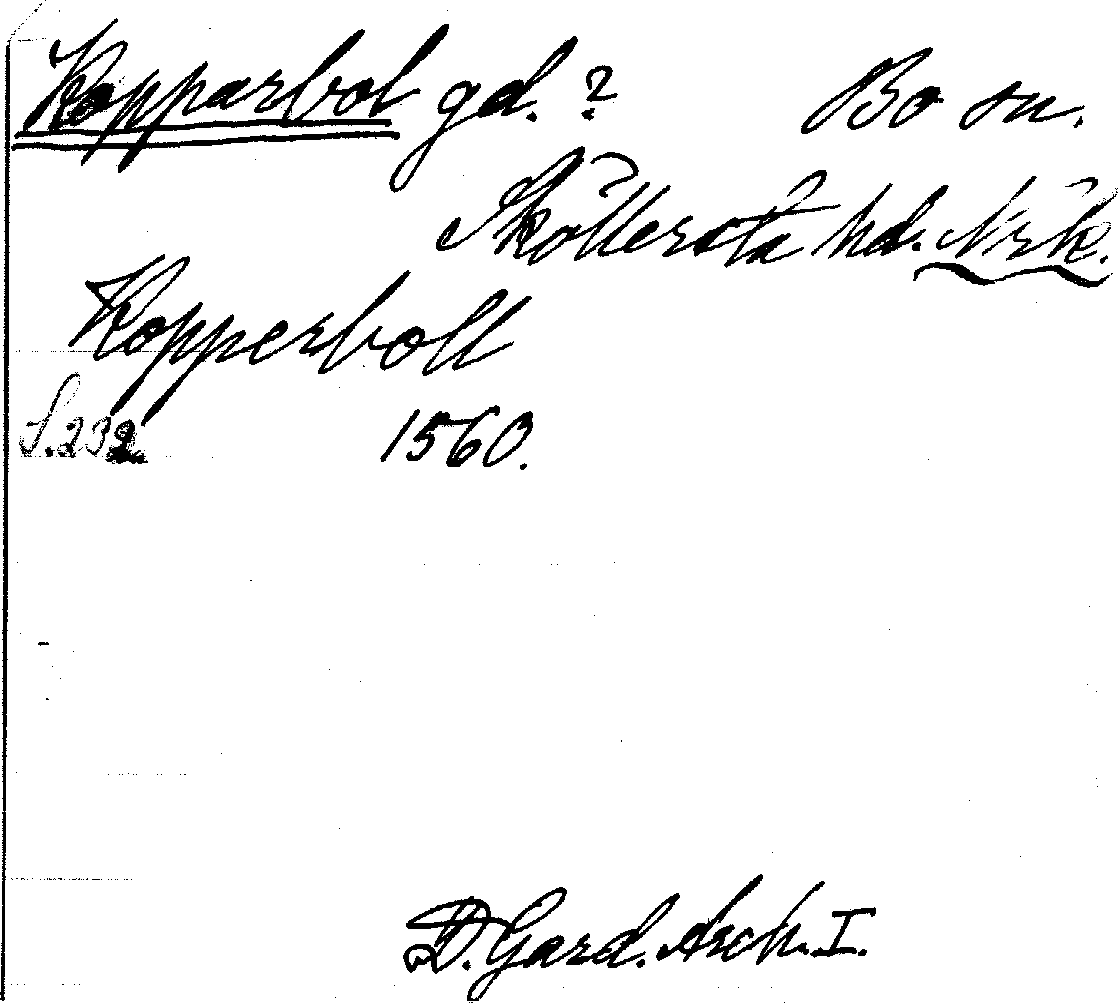 Kopparbol gd. ? Bo sn.
Sköllersta hd. Nrk.
Kopperboll
S. 232. 1560.
D. Gard. Arch. I.